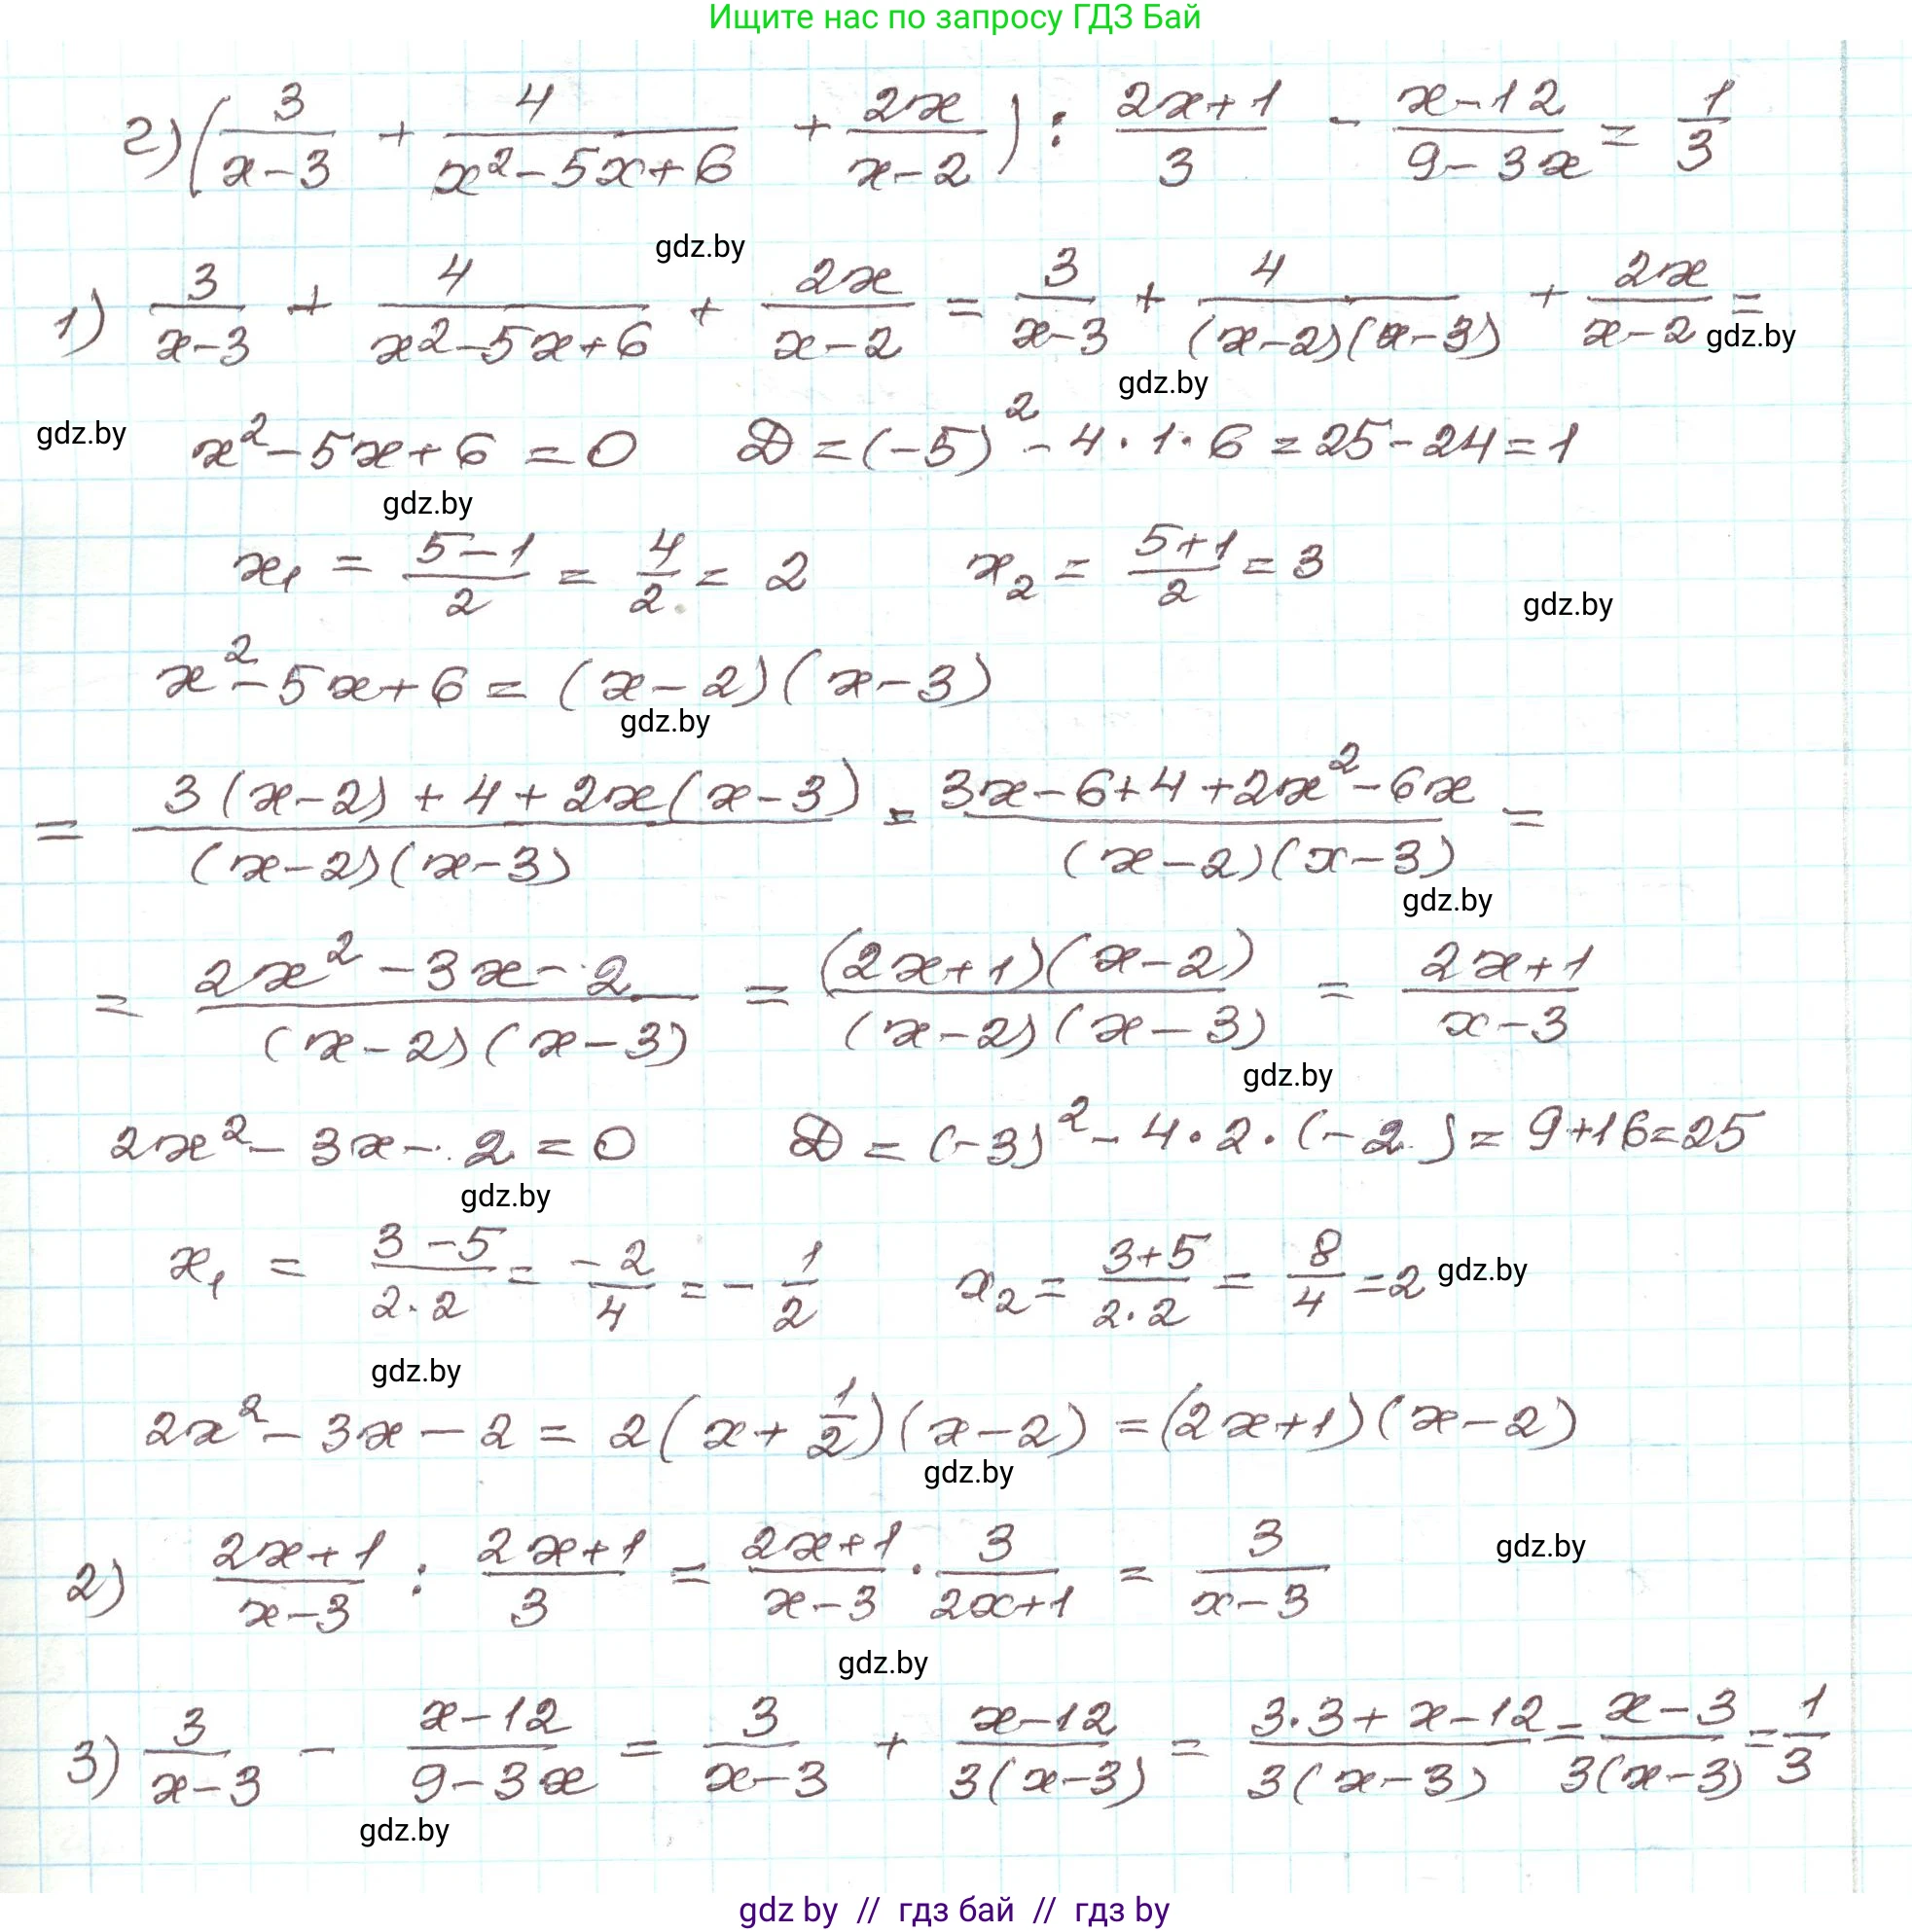 Ищите нас по запросу ГДЗ Бай
г) (3/(x-3) + 4/(x²-5x+6) + 2x/(x-2)) : (2x+1)/3 - (x-12)/(9-3x) = 1/3
gdz.by
1) 3/(x-3) + 4/(x²-5x+6) + 2x/(x-2) = 3/(x-3) + 4/((x-2)(x-3)) + 2x/(x-2) =
gdz.by
gdz.by
gdz.by
x²-5x+6=0 D=(-5)²-4·1·6=25-24=1
gdz.by
x₁ = (5-1)/2 = 4/2 = 2 x₂ = (5+1)/2 = 3
gdz.by
x²-5x+6=(x-2)(x-3)
gdz.by
= (3(x-2)+4+2x(x-3))/((x-2)(x-3)) = (3x-6+4+2x²-6x)/((x-2)(x-3)) =
gdz.by
= (2x²-3x-2)/((x-2)(x-3)) = ((2x+1)(x-2))/((x-2)(x-3)) = (2x+1)/(x-3)
gdz.by
2x²-3x-2=0 D=(-3)²-4·2·(-2)=9+16=25
gdz.by
x₁ = (3-5)/(2·2) = -2/4 = -1/2 x₂ = (3+5)/(2·2) = 8/4 = 2
gdz.by
gdz.by
2x²-3x-2=2(x+1/2)(x-2)=(2x+1)(x-2)
gdz.by
2) (2x+1)/(x-3) : (2x+1)/3 = (2x+1)/(x-3) · 3/(2x+1) = 3/(x-3)
gdz.by
gdz.by
3) 3/(x-3) - (x-12)/(9-3x) = 3/(x-3) + (x-12)/(3(x-3)) = (3·3+x-12)/(3(x-3)) = (x-3)/(3(x-3)) = 1/3
gdz.by
gdz by // гдз бай // гдз by